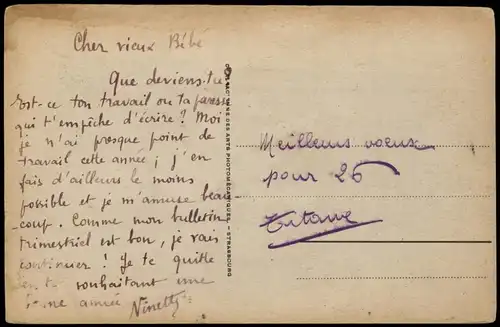 Cher vieux Bébé
Que deviens-tu
Est-ce ton travail ou ta paresse
qui t'empêche d'écrire? Moi
je n'ai presque point de
travail cette année ; j'en
fais d'ailleurs le moins
possible et je m'amuse beau-
-coup. Comme mon bulletin
trimestriel est bon, je vais
continuer ! Je te quitte
en te souhaitant une
bonne année Ninette
Meilleurs voeux
pour 26
Titane
PHOTOMÉCANIQUES, - STRASBOURG